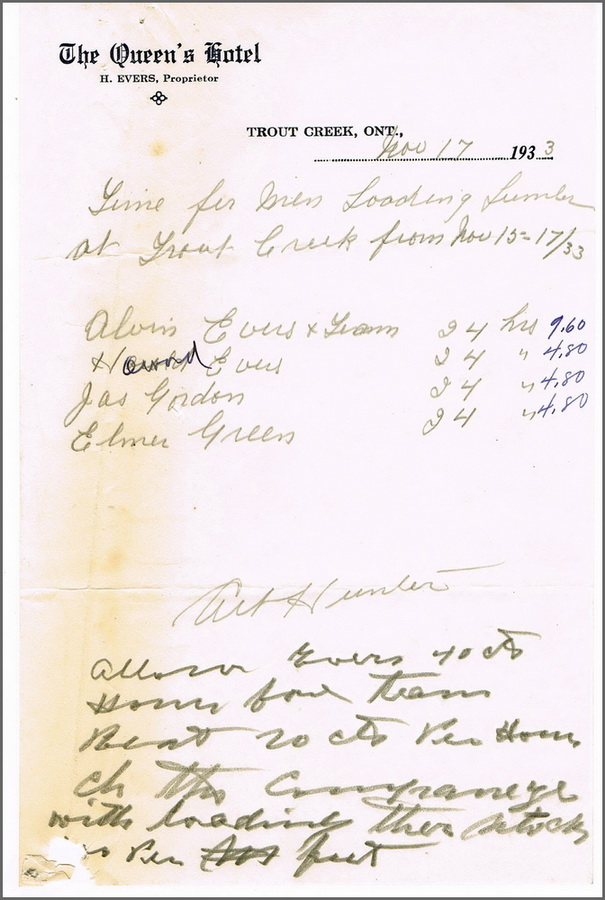 The Queen's Hotel
H. EVERS, Proprietor
TROUT CREEK, ONT.,
Nov 17 1933
Time for Men Loading Lumber
at Trout Creek from Nov 15-17/33
Alvin Evers & Team 24 hrs 9.60
Howard Evers 24 " 4.80
Jas Gordon 24 " 4.80
Elmer Green 24 " 4.80
Art Hunter
Allow Evers 40 cts
Hour for team
Rest 20 cts Per Hour
Ch the Companeye
with loading ther stock
Per feet